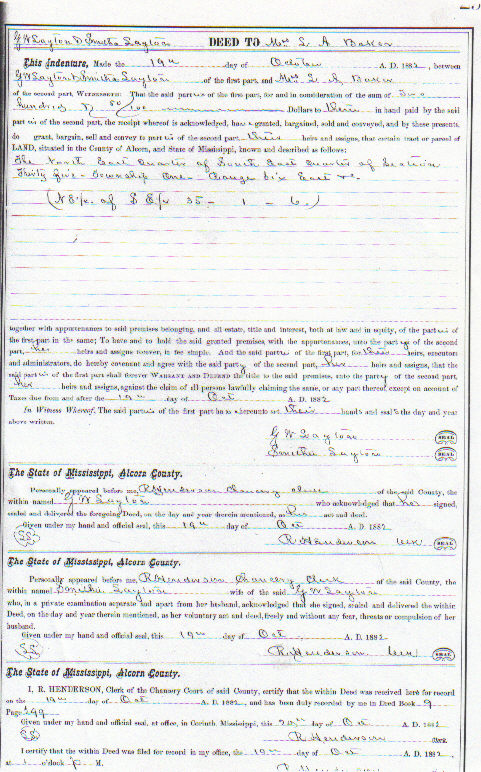 G W Layton & Smitha Layton DEED TO Mrs L A Baker
This Indenture, Made the 19th day of October A. D. 1882, between
G W Layton & Smitha Layton of the first part, and Mrs L A Baker
of the second part, WITNESSETH: That the said parties of the first part, for and in consideration of the sum of Two
hundred & 50/100 Dollars to them in hand paid by the said
part of the second part, the receipt whereof is acknowledged, have granted, bargained, sold and conveyed, and by these presents,
do grant, bargain, sell and convey to part of the second part their heirs and assigns, that certain tract or parcel of
LAND, situated in the County of Alcorn, and State of Mississippi, known and described as follows:
The North East Quarter of South East Quarter of Section
Thirty five - Township One - Range Six East
(N E 1/4 of S E 1/4 35 - 1 - 6.)
together with appurtenances to said premises belonging, and all estate, title and interest, both at law and in equity, of the parties of
the first part in the same; To have and to hold the said granted premises, with the appurtenances, unto the party of the second
part, her heirs and assigns forever, in fee simple. And the said parties of the first part, for their heirs, executors
and administrators, do hereby covenant and agree with the said party of the second part, her heirs and assigns, that the
said parties of the first part shall forever WARRANT AND DEFEND the title to the said premises, unto the party of the second part,
her heirs and assigns, against the claim of all persons lawfully claiming the same, or any part thereof, except on account of
Taxes due from and after the 19th day of Oct A. D. 1882
In Witness Whereof, The said parties of the first part have hereunto set their hands and seals the day and year
above written.
G W Layton SEAL
Smitha Layton SEAL
The State of Mississippi, Alcorn County.
Personally appeared before me, R Henderson Chancery Clerk of the said County, the
within named G W Layton who acknowledged that he signed,
sealed and delivered the foregoing Deed, on the day and year therein mentioned, as his act and deed.
Given under my hand and official seal, this 19th day of Oct A. D. 1882
R Henderson Clerk SEAL
The State of Mississippi, Alcorn County.
Personally appeared before me, R Henderson Chancery Clerk of the said County, the
within named Smitha Layton wife of the said G W Layton
who, in a private examination separate and apart from her husband, acknowledged that she signed, sealed and delivered the within
Deed, on the day and year therein mentioned, as her voluntary act and deed, freely and without any fear, threats or compulsion of her
husband.
Given under my hand and official seal, this 19th day of Oct. A. D. 1882
R. Henderson Clerk SEAL
The State of Mississippi, Alcorn County.
I, R. HENDERSON, Clerk of the Chancery Court of said County, certify that the within Deed was received here for record
on the 19th day of Oct A. D. 1882, and has been duly recorded by me in Deed Book 9
Page 299
Given under my hand and official seal, at office, in Corinth, Mississippi, this 20th day of Oct A. D. 1882
R Henderson Clerk.
I certify that the within Deed was filed for record in my office, the 19th day of Oct A. D. 1882,
at o'clock P M.